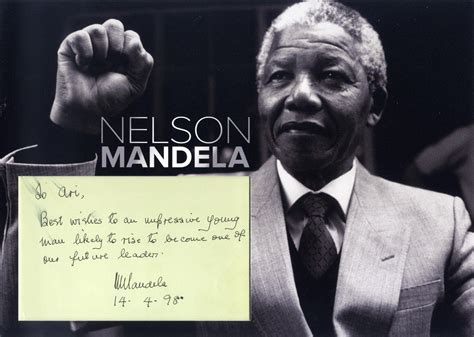 NELSON
MANDELA
To Ari,
Best wishes to an impressive young
man likely to rise to become one of
our future leader.
NMandela
14. 4. 98